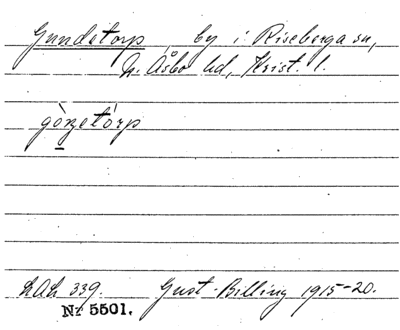 Gundetorp, by i Riseberga sn,
N. Åsbo hd, Krist. l.
gònzetòrp
LAL 339. Gust. Billing 1915-20.
Nr 5501.